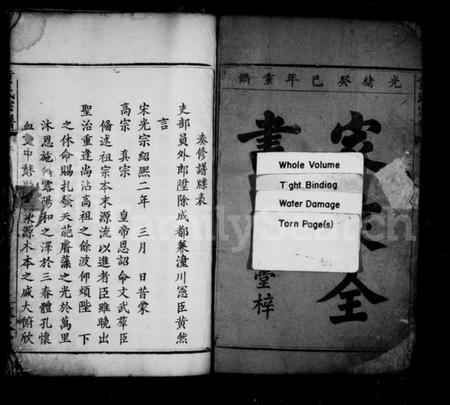 光緒癸巳年重鐫
家
全
書
堂梓
Whole Volume
Tight Binding
Water Damage
Torn Page(s)
FamilySearch
奏修譜牒表
吏部員外郎陞除成都兼潼川憲臣黄然
言
宋光宗紹熙二年 三月 日昔蒙
高宗 真宗 皇帝恩詔命文武羣臣
俻述祖宗本末源流以進者臣雖晩出
聖治重逢尚沾高祖之餘波仰頼陛 下
之休命賜扎發天葩磨藻之光於萬里
沐恩施 露陽和之澤於三春體孔懷
源木本之盛大俯欣